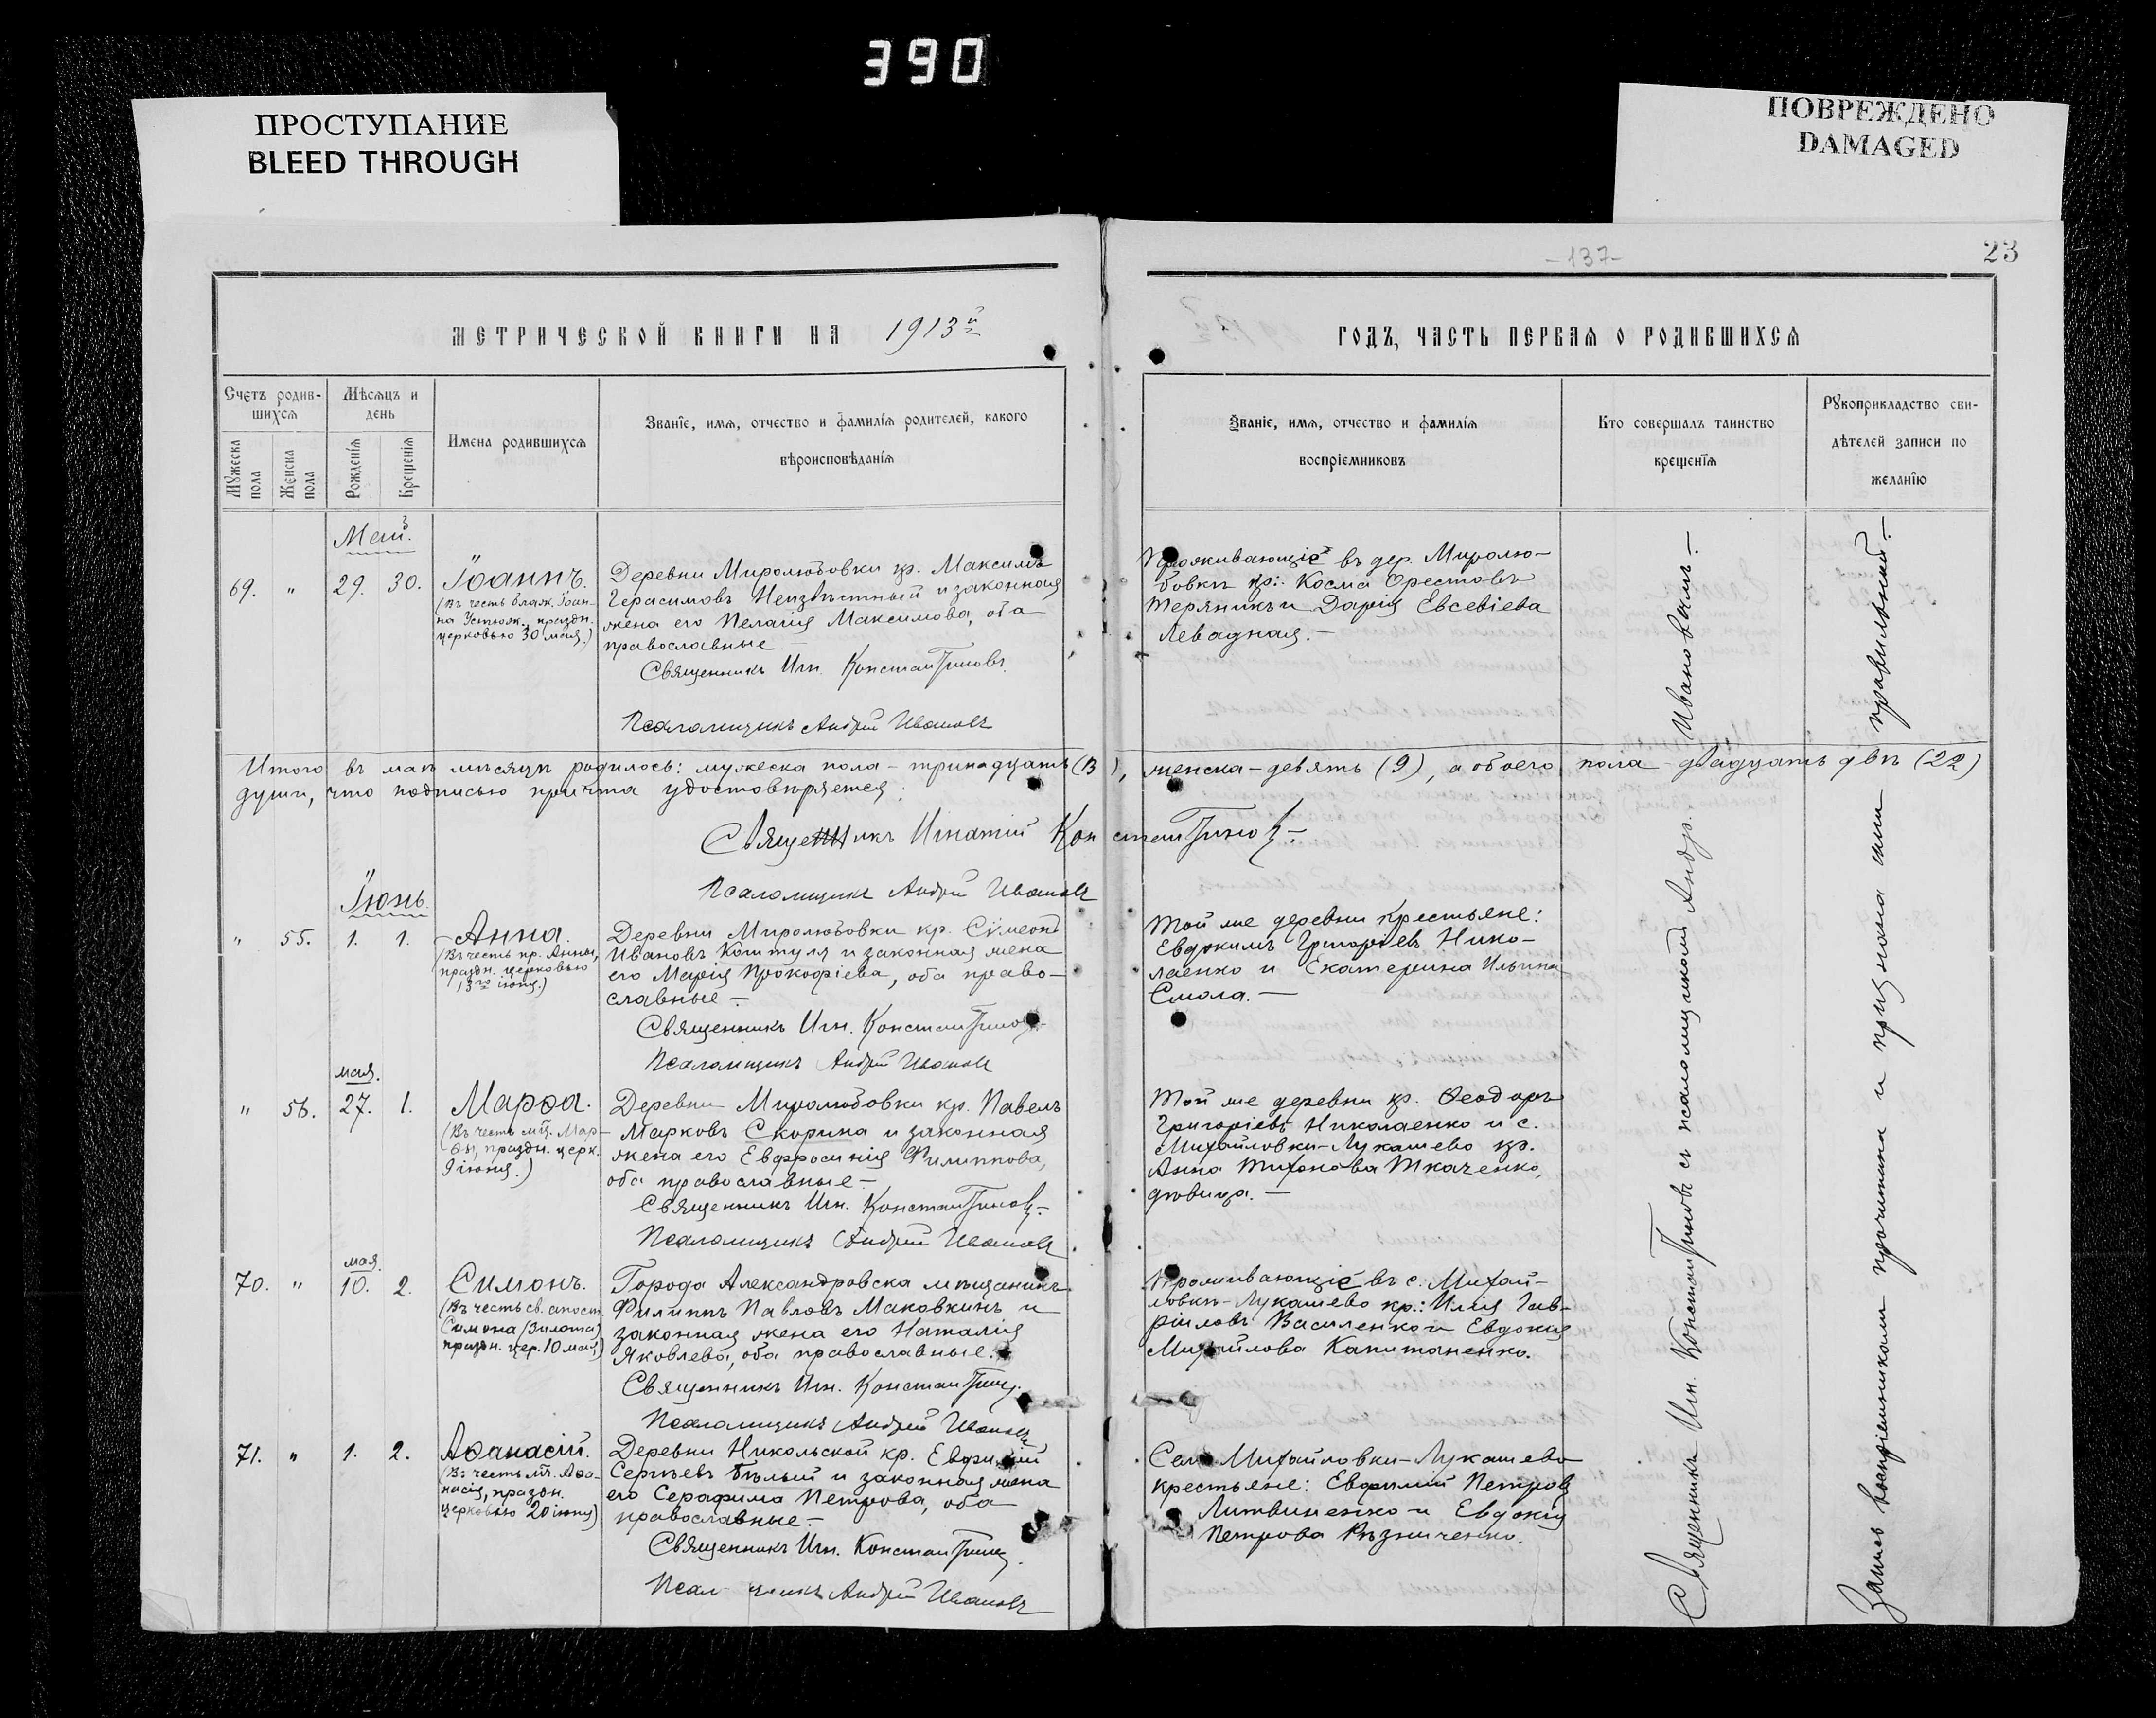 390
ПРОСТУПАНИЕ
BLEED THROUGH
ПОВРЕЖДЕНО
DAMAGED
-137-
23
МЕТРИЧЕСКОЙ КНИГИ НА 1913й
Счетъ родив-
шихся
Мѣсяцъ и
день
Мужеска
пола
Женска
пола
Рожденія
Крещенія
Имена родившихся
Званіе, имя, отчество и фамилія родителей, какого
вѣроисповѣданія
Май.
69. " 29. 30. Іоаннъ.
(Въ честь блаж. Іоан-
на Устюж., праздн.
церковью 30 мая.)
Деревни Миролюбовки кр. Максимъ
Герасимовъ Неизвѣстный и законная
жена его Пелагія Максимова, оба
православные
Священникъ Игн. Константиновъ.
Псаломщикъ Андрей Ивановъ
Итого въ маѣ мѣсяцѣ родилось: мужеска пола - тринадцать (13), женска - девять (9), а обоего пола - двадцать двѣ (22)
души, что подписью причта удостовѣряется.
Священникъ Игнатій Константиновъ-
Псаломщикъ Андрей Ивановъ
Іюнь.
" 55. 1. 1. Анна.
(Въ честь пр. Анны,
праздн. церковью
13го іюня.)
Деревни Миролюбовки кр. Сѵмеонъ
Ивановъ Коштуля и законная жена
его Марія Прокофіева, оба право-
славные -
Священникъ Игн. Константинов
Псаломщикъ Андрей Ивановъ
мая.
" 56. 27. 1. Марѳа.
(Въ честь мц. Мар-
ѳы, праздн. церк.
9 іюня.)
Деревни Миролюбовки кр. Павелъ
Марковъ Скорина и законная
жена его Евфросинія Филиппова,
оба православные -
Священникъ Игн. Константиновъ-
Псаломщикъ Андрей Ивановъ
мая.
70. " 10. 2. Симонъ.
(Въ честь св. апост.
Симона (Зилота)
праздн. цер. 10 мая.)
Города Александровска мѣщанинъ
Филиппъ Павловъ Маковкинъ и
законная жена его Наталія
Яковлева, оба православные.
Священникъ Игн. Константинов
Псаломщикъ Андрей Ивановъ
71. " 1. 2. Аѳанасій.
(Въ честь мч. Аѳа-
насія, праздн.
церковью 20 іюня)
Деревни Никольской кр. Евфимій
Сергѣевъ Бѣлый и законная жена
его Серафима Петрова, оба
православные -
Священникъ Игн. Константинов
Псал щикъ Андрей Ивановъ
ГОДЪ, ЧАСТЬ ПЕРВАЯ О РОДИВШИХСЯ
Званіе, имя, отчество и фамилія
воспріемниковъ
Кто совершалъ таинство
крещенія
Рукоприкладство сви-
дѣтелей записи по
желанію
Проживающіе въ дер. Миролю-
бовкѣ кр.: Косма Орестовъ
Теряникъ и Дарія Евсевіева
Левадная. -
Той же деревни крестьяне:
Евдокимъ Григорьевъ Нико-
лаенко и Екатерина Ильина
Смола. -
Той же деревни кр. Ѳеодоръ
Григоріевъ Николаенко и с.
Михайловки-Лукашево кр.
Анна Тихонова Ткаченко,
дѣвица. -
Проживающіе въ с. Михай-
ловкѣ-Лукашево кр.: Илія Гав-
риловъ Василенко и Евдокія
Михайлова Капитаненко.
Села Михайловки-Лукашево
крестьяне: Евфимій Петровъ
Литвиненко и Евдокія
Петрова Рѣзниченко.
Священникъ Игн. Константиновъ съ псаломщикомъ Андр. Ивановымъ. -
Запись воспріемниками прочитана и признана ими правильной. -